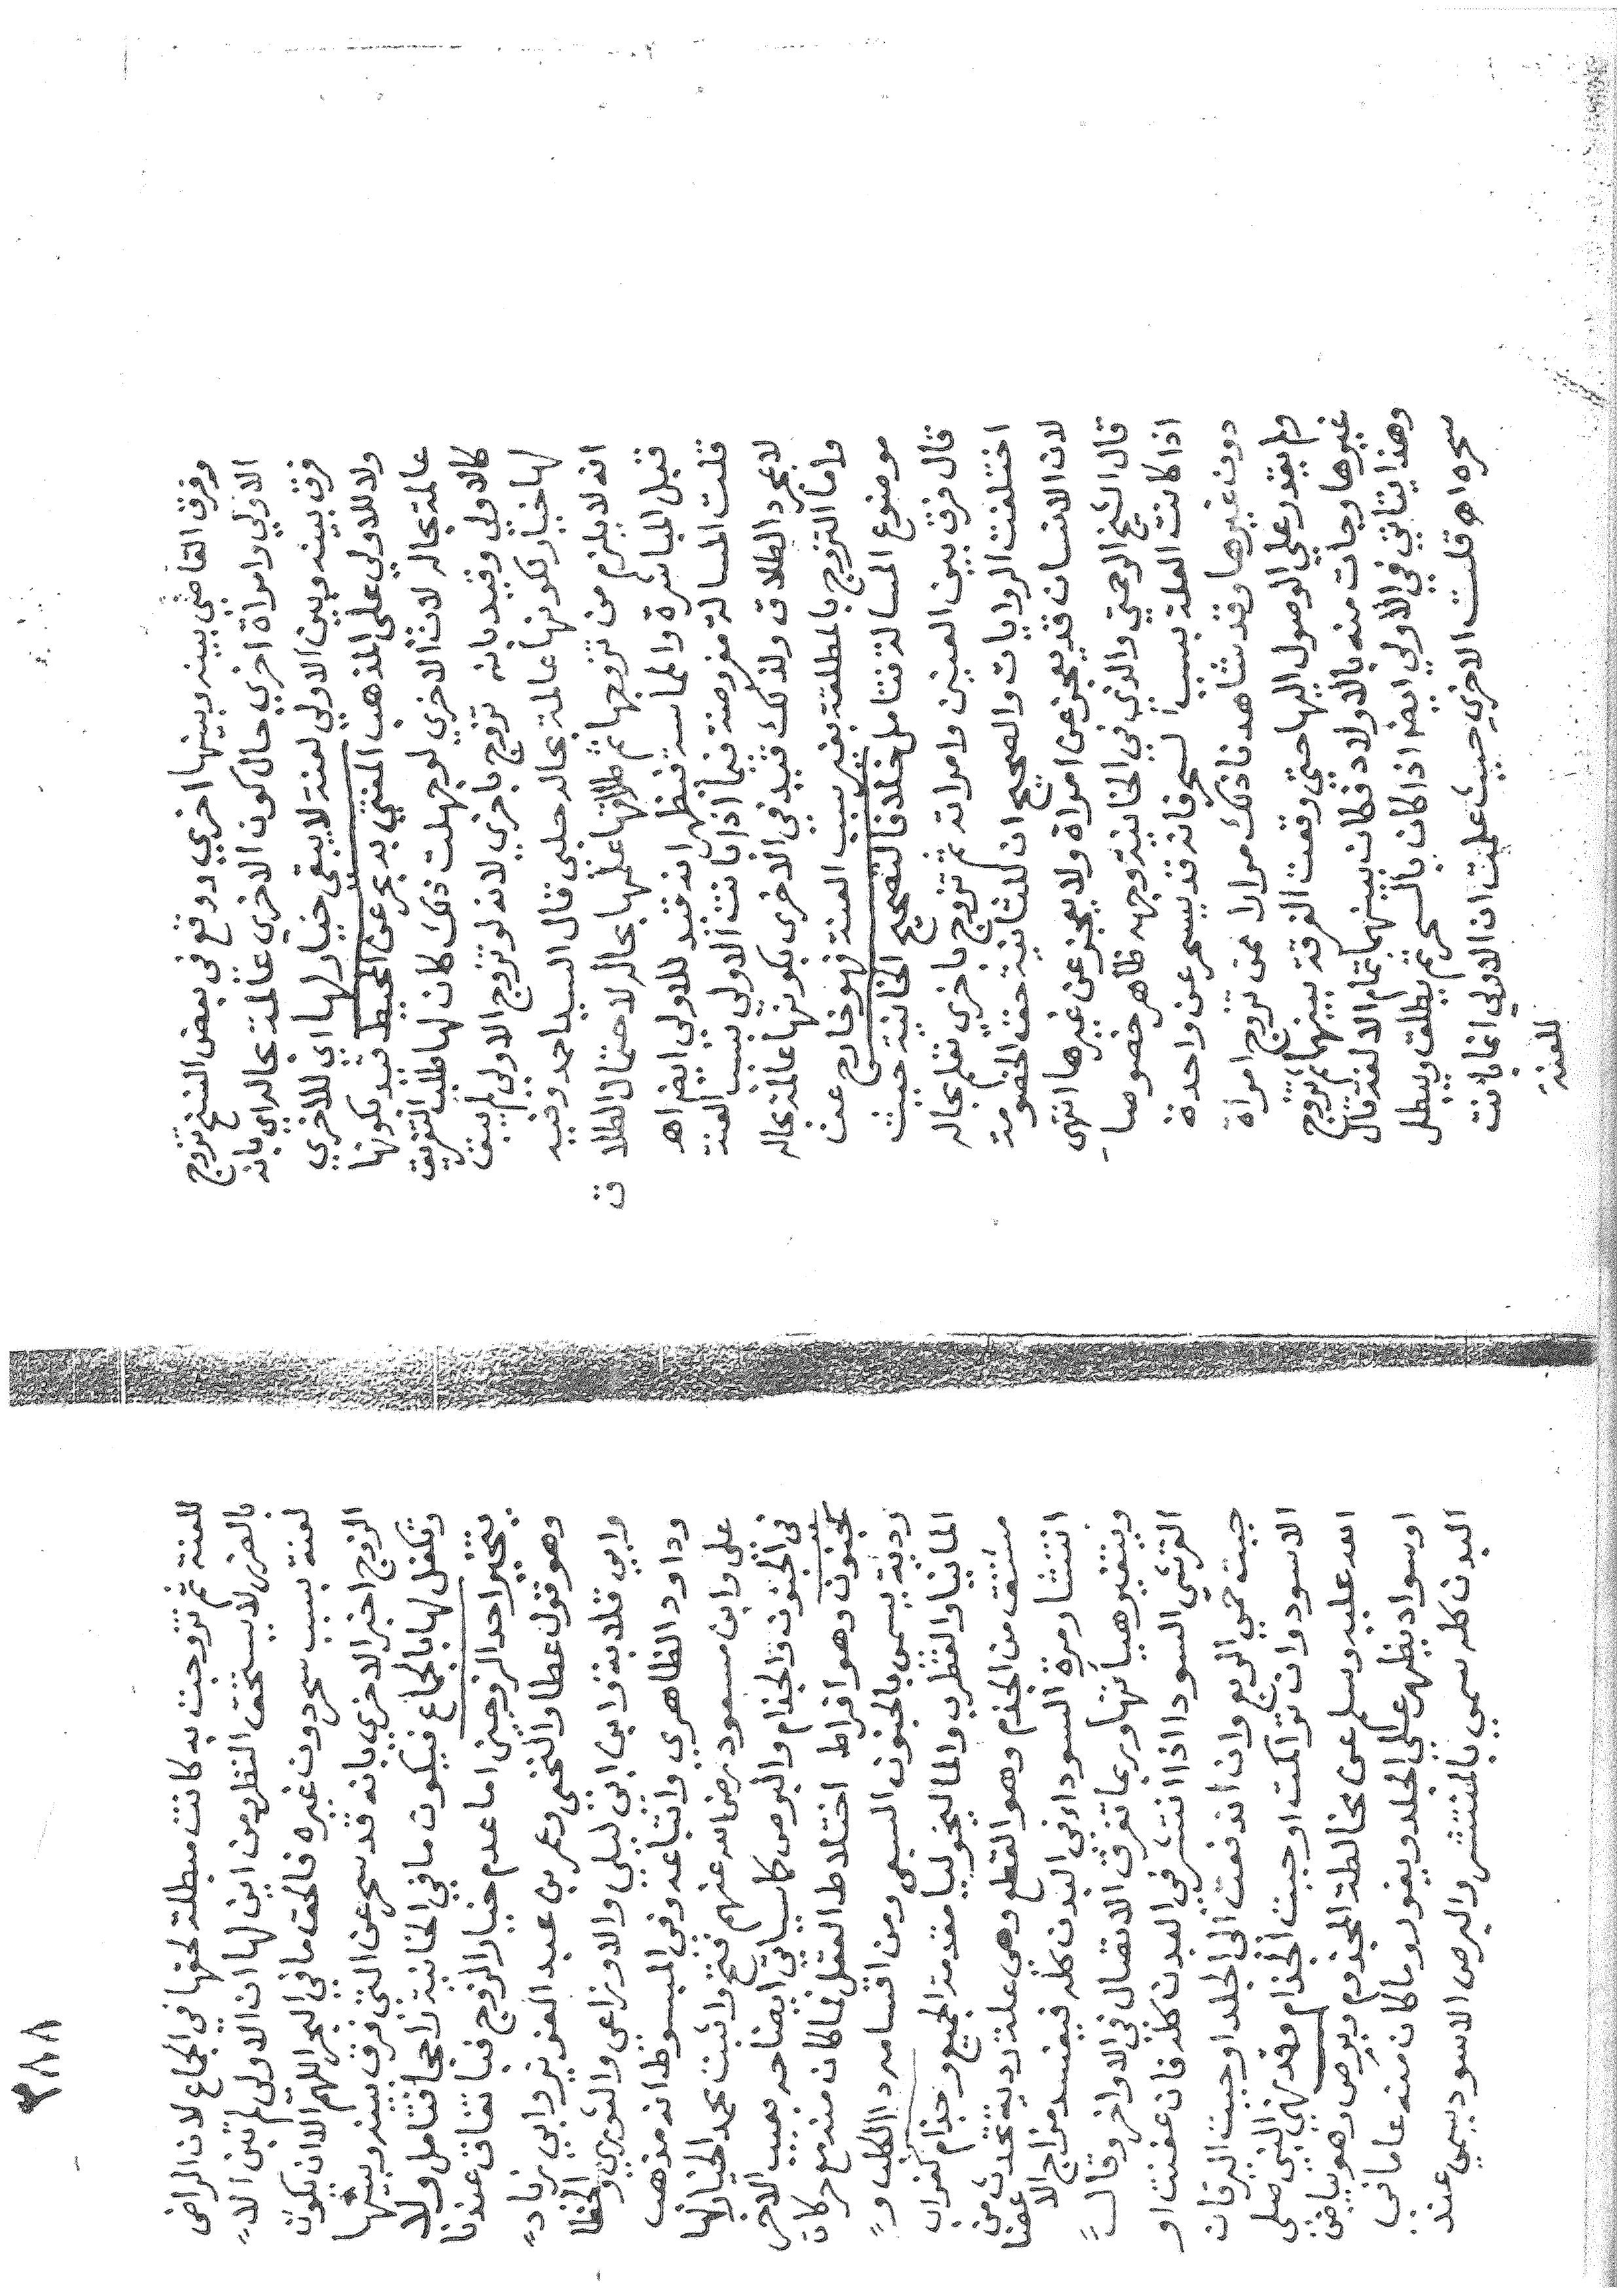 وفرق القاضي بينه وبينها اخري ووقع في بعض النسخ تزوج
الاولي وامراة اخري حال كون الاخري عالمة بحاله اي بانه
فرق بينه وبين الاولي لعنة لا يبقى خيار لها اي للاخري
ولا للاولي على المذهب المفتي به بحر عن المحيط قيد بكونها
عالمة بحاله لان الاخري لو جهلت ذلك كان لها طلب التفريق
كالاولي وقيد بانه تزوج باخري لانه لو تزوج الاولي لم يبق
لها خيار لكونها عالمة بحاله حلبي قال السيد احمد وفيه
انه لا يلزم من تزوجها ثم طلاقها علمها بحاله لاحتمال الطلاق
قبل المباشرة والمماسة فتظهر انه قيد للاولي ايضا اهـ
قلت المسالة مفروضة فيما اذا بانت الاولي بسبب العنة
لا بمجرد الطلاق ولذلك قيد في الاخرى بكونها عالمة بحاله
واما التزوج بالمطلقة بغير سبب العنة فهو خارج عن
موضوع المسالة فتامل خلافا لتصحيح الخانية حيث
قال فرق بين العنين وامراته ثم تزوج باخري تعلم بحاله
اختلفت الروايات والصحيح ان للثانية حق الخصومة
لان الانسان قد يعجز عن امراة ولا يعجز عن غيرها انتهى
قال الشيخ الرحمتي والذي في الخانية وجهه ظاهر خصوصا
اذا كانت العلة بسبب السحر فانه قد يسحر عن واحدة
دون غيرها وقد شاهدنا ذلك مرارا ممن تزوج امراة
ولم يقدر علي الوصول اليها حتي وقعت الفرقة بينهما ثم تزوج
غيرها وجات منه بالاولاد فكان بينهما تمام الالفة قال
وهذا يتاتي في الاولي ايضا اذا كان بالسحر ثم يطلق ويبطل
سحره اهـ قلت الاخري حيث علمت ان الاولي انما بانت
للعنة
٢٨٨
للعنة ثم تزوجت به كانت مبطلة لحقها في الجماع لان الراضي
بالضرر لا يستحق النظر من اين لها ان الاولى لم تبن الا
لعنة بسبب سحر دون غيره فالحق ما في البحر اللهم الا ان يكون
الزوج اخبر الاخري بانه قد سحر عن التي فرق بينه وبينها
وتكفل لها بالجماع فيكون ما في الخانية راجحا فتامل ولا
يتخير احد الزوجين اما عدم خيار الزوج فباتفاق عندنا
وهو قول عطا والنخعي وعمر بن عبد العزيز وابي زياد
وابي قلابة وابن ابي ليلي والاوزاعي والثوري والخطا
وداود الظاهري واتباعه وفي المبسوط انه مذهب
علي وابن مسعود رضي الله عنهم فتح واثبت محمد الخيار لها
في الجنون والجذام والبرص كما سياتي ايضاحه بعيب الاخر
كجنون وهو افراط اختلاط العقل فما كان منه مع حركات
ردية يسمى بالجنون السبعي ومن اقسامه دا الكلب و
المانيا والقطرب والماليخوليا مقدمة الجميع وجذام كغراب
مشتق من الجذم وهو القطع وهي علة ردية تحدث من
انتشار مرة السوداء في البدن كله فيفسد مزاج الاعضا
ويتغير هياتها وربما تفرق الاتصال في الاواخر وقال
القرشي السودا اذا انتشر في البدن كله فان عفنت او
جبت حمي الربع وان اندفعت الى الجلد اوجبت اليرقان
الاسود وان تراكمت اوجبت الجذام وقد نهي النبي صلى
الله عليه وسلم عن مخالطة المجذوم وبرص وهو بياض
او سواد يظهر علي الجلد ويغور وما كان منه عاما في
البدن كله سمي بالمنتشر والبرص الاسود يسمي عند